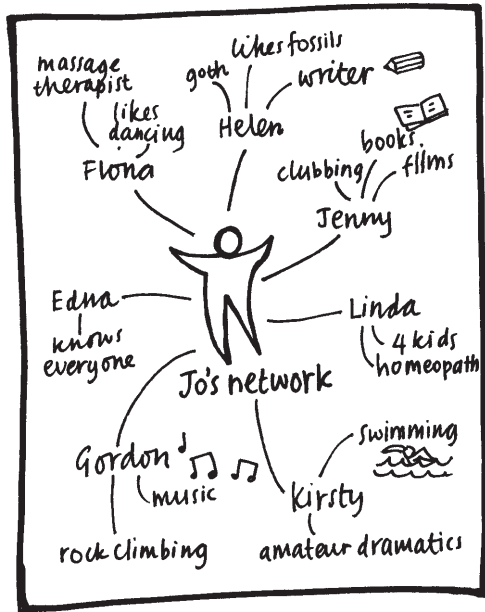 massage
therapist
likes
dancing
Fiona
goth
likes fossils
writer
Helen
clubbing
books
films
Jenny
Edna
knows
everyone
Linda
4 kids
homeopath
Jo's network
Gordon
music
rock climbing
swimming
Kirsty
amateur dramatics